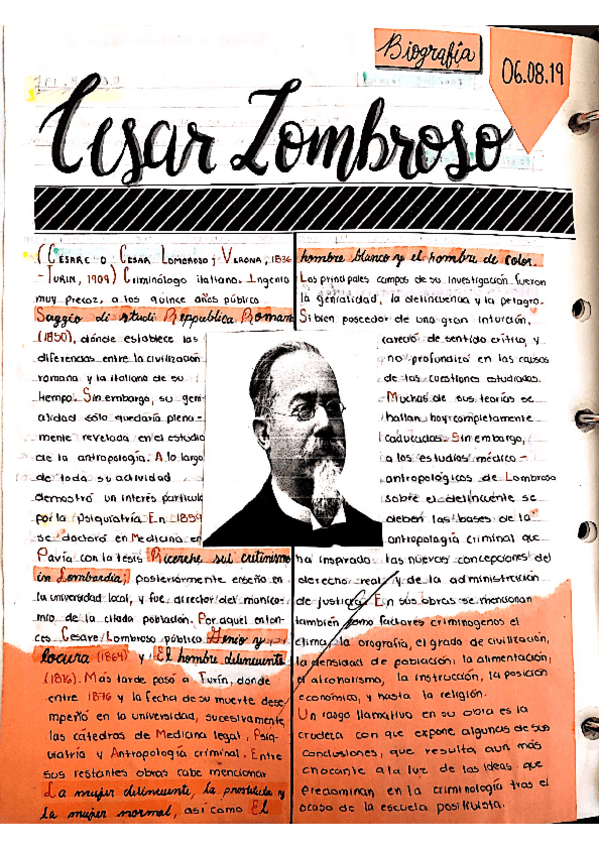 Biografía
06.08.19
Cesar Lombroso
(Césare o Cesar Lombroso; Verona, 1836
-Turin, 1909) Criminólogo italiano. Ingenio
muy precoz, a los quince años público
Saggio di studi Reppublica Romana
(1850), dónde establece las
diferencias entre la civilización
romana y la italiana de su
tiempo. Sin embargo, su geni-
alidad sólo quedaría plena-
mente revelada en el estudio
de la antropología. A lo largo
de toda su actividad
demostró un interés particula
por la Psiquiatría En 1859
se doctoró en Medicina en
Pavía con la tesis Ricerche sul cretinismo
in Lombardia; posteriormente enseño en
la universidad local, y fue director del manico-
mio de la citada población. Por aquel enton-
ces Cesare Lombroso público Genio y
locura (1864) y El hombre delincuente
(1876). Más tarde pasó a Turín, donde
entre 1876 y la fecha de su muerte dese
mpeñó en la universidad, sucesivamente,
las cátedras de Medicina legal, Psiq-
uiatría y Antropología criminal. Entre
sus restantes obras cabe mencionar
La mujer delincuente, la prostituta y
la mujer normal, así como El
hombre blanco y el hombre de color.
Los principales campos de su investigación fueron
la genialidad, la delincuencia y la pelagra.
Si bien poseedor de una gran intuición,
careció de sentido crítico, y
no profundizó en las causas
de las cuestiones estudiadas.
Muchas de sus teorías se
hallan hoy completamente
caducadas. Sin embargo,
a los estudios médico-
antropológicos de Lombroso
sobre el delincuente se
deben las bases de la
antropología criminal que
ha inspirado las nuevas concepciones del
derecho real y de la administración
de justicia. En sus obras se mencionan
también como factores criminogenos el
clima, la orografía, el grado de civilización,
la densidad de población, la alimentación,
el alcoholismo, la instrucción, la posición
económico, y hasta la religión.
Un rasgo llamativo en su obra es la
crudeza con que expone algunas de sus
conclusiones, que resulta aún más
chocante a la luz de las ideas que
predominan en la criminología tras el
ocaso de la escuela positivista.